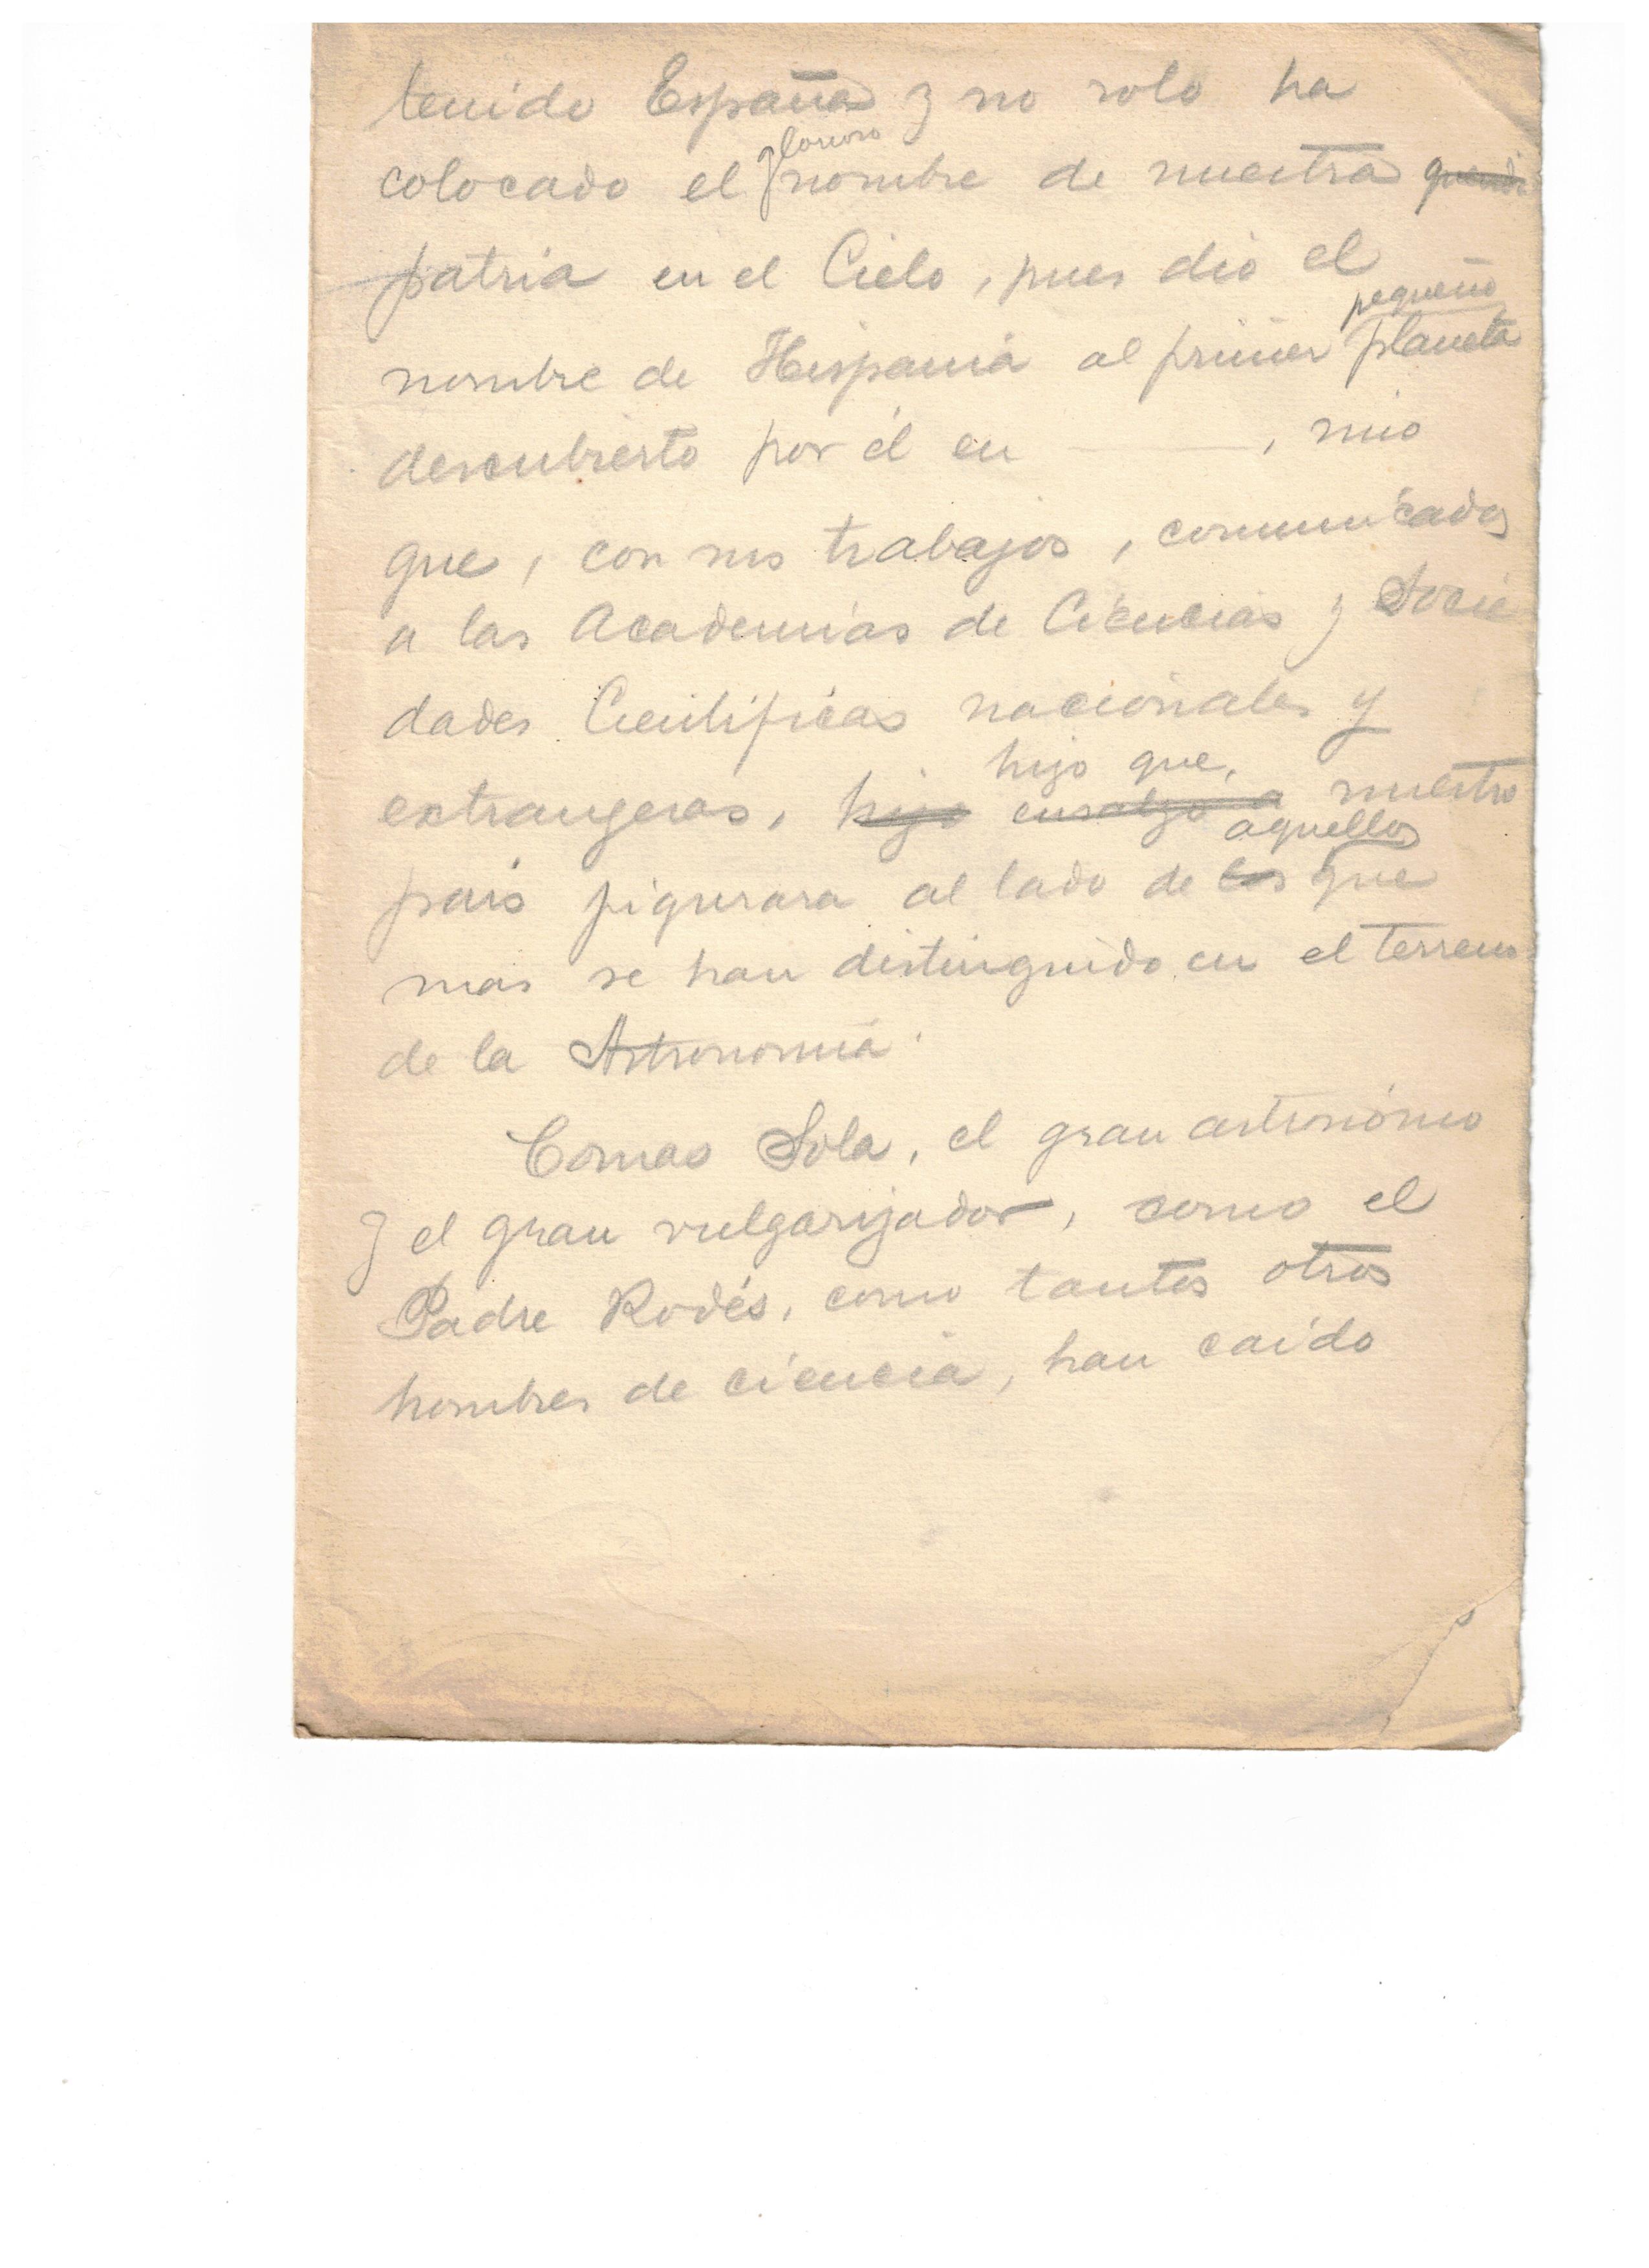 tenido España y no solo ha
glorioso
colocado el nombre de nuestra querida
patria en el Cielo, pues dio el
pequeño
nombre de Hispania al primer planeta
descubierto por él en ———, sino
que, con sus trabajos, comunicados
a las Academias de Ciencias y Socie
dades Cientificas nacionales y
hijo que,
extrangeras, hijo ensalzo a nuestro
aquellos
pais figurara al lado de los que
mas se han distinguido en el terreno
de la Astronomia.
Comas Sola, el gran astronómo
y el gran vulgarizador, como el
Padre Rodés, como tantos otros
hombres de ciencia, han caido